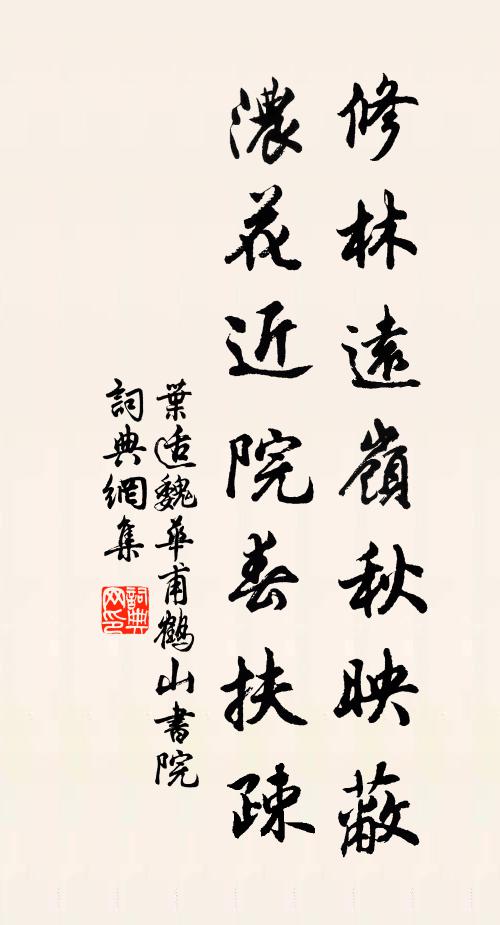 修林遠嶺秋映蔽
濃花近院春扶疎
葉适魏華甫鶴山書院
詞典網集
詞典
网印